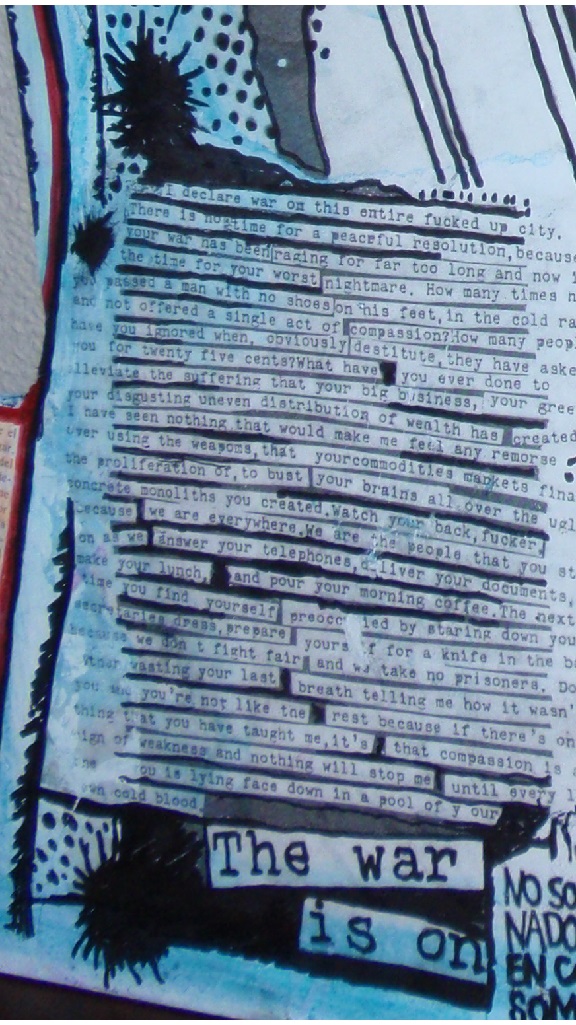 I declare war on this entire fucked up city.
There is no time for a peaceful resolution, because
your war has been raging for far too long and now
the time for your worst nightmare. How many times
you passed a man with no shoes on his feet, in the cold
and not offered a single act of compassion? How many
have you ignored when, obviously destitute, they have
you for twenty five cents? What have you ever done to
alleviate the suffering that your big business, your
your disgusting uneven distribution of wealth has created
I have seen nothing that would make me feel any remorse
over using the weapons, that your commodities markets
the proliferation of, to bust your brains all over the
concrete monoliths you created. Watch your back, fucker,
because we are everywhere. We are the people that you
on as we answer your telephones, deliver your documents,
make your lunch, and pour your morning coffee. The next
time you find yourself preoccupied by staring down
secretaries dress, prepare yourself for a knife in the
because we don't fight fair and we take no prisoners.
wasting your last breath telling me how it wasn'
you you're not like the rest because if there's
thing that you have taught me, it's that compassion is
sign of weakness and nothing will stop me until every
one you is lying face down in a pool of your
own cold blood
The war
is on
NO
EN